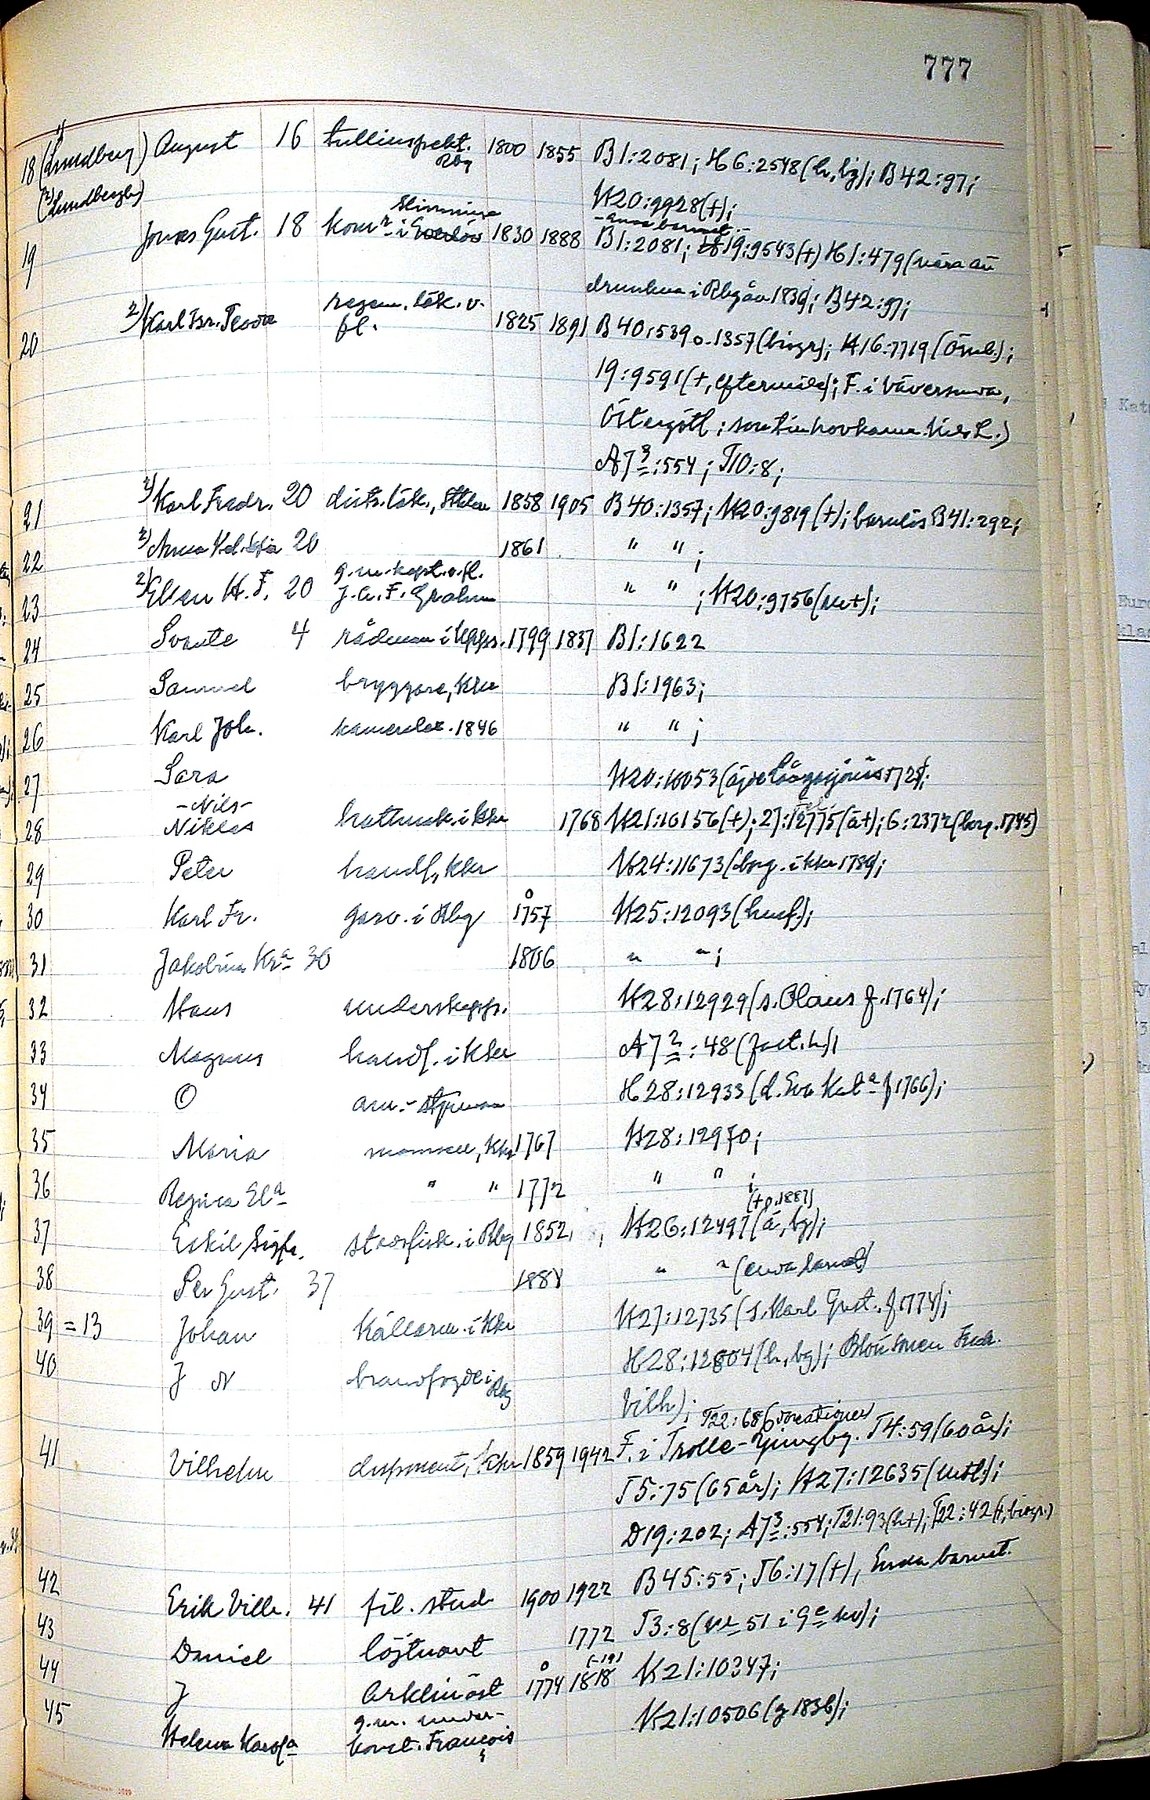 777
18 (Lundberg) August 16 tullinspekt. Rbg 1800 1855 B1:2081; H6:2548(h, bg); B42:97;
(2) Lundbergh) H20:9928(+);
19 Jonas Gust. 18 komr i 1830 1888 B1:2081; 19:9543(+) H1:479(nära att
drunkna i Rbgån 1839); B42:97;
20 2) Karl Fr. regem. läk. v. fl. 1825 1891 B40:539 o. 1357(biogr); H16:7719
19:9591(+, ; F. i Väversunda,
Östergötl; son t. hovkamr. Nils L.)
A7 3:554; T10:8;
21 2) Karl Fredr. 20 distr. läk., Sthlm 1858 1905 B40:1357; H20:9819(+); barnlös B41:292;
22 2) Anna 20 1861 " " ;
23 2) Ellen H. F. 20 g. m. kapt. o. fl. J. A. F. Grahn " " ; H20:9756
24 Svante 4 rådman i 1799 1837 B1:1622
25 Samuel bryggare, Khn B1:1963;
26 Karl Joh. kamrerder. 1846 " " ;
27 Sara H20:10053
-Nils-
28 Niklas hattmak. i Khn 1768 H21:10156(+); 27:12775(ä+); 6:2372(borg. 1745)
29 Peter handl, Khn H24:11673(borg. i Khn 1739);
30 Karl Fr. garv. i Rbg 1757 H25:12093(husf);
31 Jakobina Kra 30 1806 " " ;
32 Hans underskepps. H28:12929(s. Olaus f. 1764);
33 Magnus handl. i Khn A7 2:48(fast. h);
34 © am.- styrman H28:12933(d. Eva Kata f 1766);
35 Maria mamsell, Khn 1767 H28:12970;
36 Regina Ela " " 1772 " " ;
37 Eskil Sigfr. stadsfisk. i Rbg 1852, H26:12497(ä, bg); (+ f. 1887)
38 Per Gust. 37 1884 " " (enda barnet)
39 = 13 Johan Källarm. i Khn H27:12735(s. Karl Gust. f 1774);
40 J N brandfogde i Rbg H28:12804(h, bg); Fredr.
Vilh);
T22:68(donationer)
41 Vilhelm disponent, Khn 1859 1942 F. i Trolle-Ljungby. T4:59(60 år);
T5:75(65 år); H27:12635
D19:202; A7 3:554; T21:93(h+); T22:42(+, biogr.)
42 Erik Vilh. 41 fil. stud 1900 1922 B45:55; T6:17(+), Enda barnet.
43 Daniel löjtnant 1772 T3:8(nr 51 i 9e kv);
44 J Arklimäst 1774 1818 (-19) H21:10347;
45 Helena Karola g. m. under- konst. François H21:10506(g 1836);